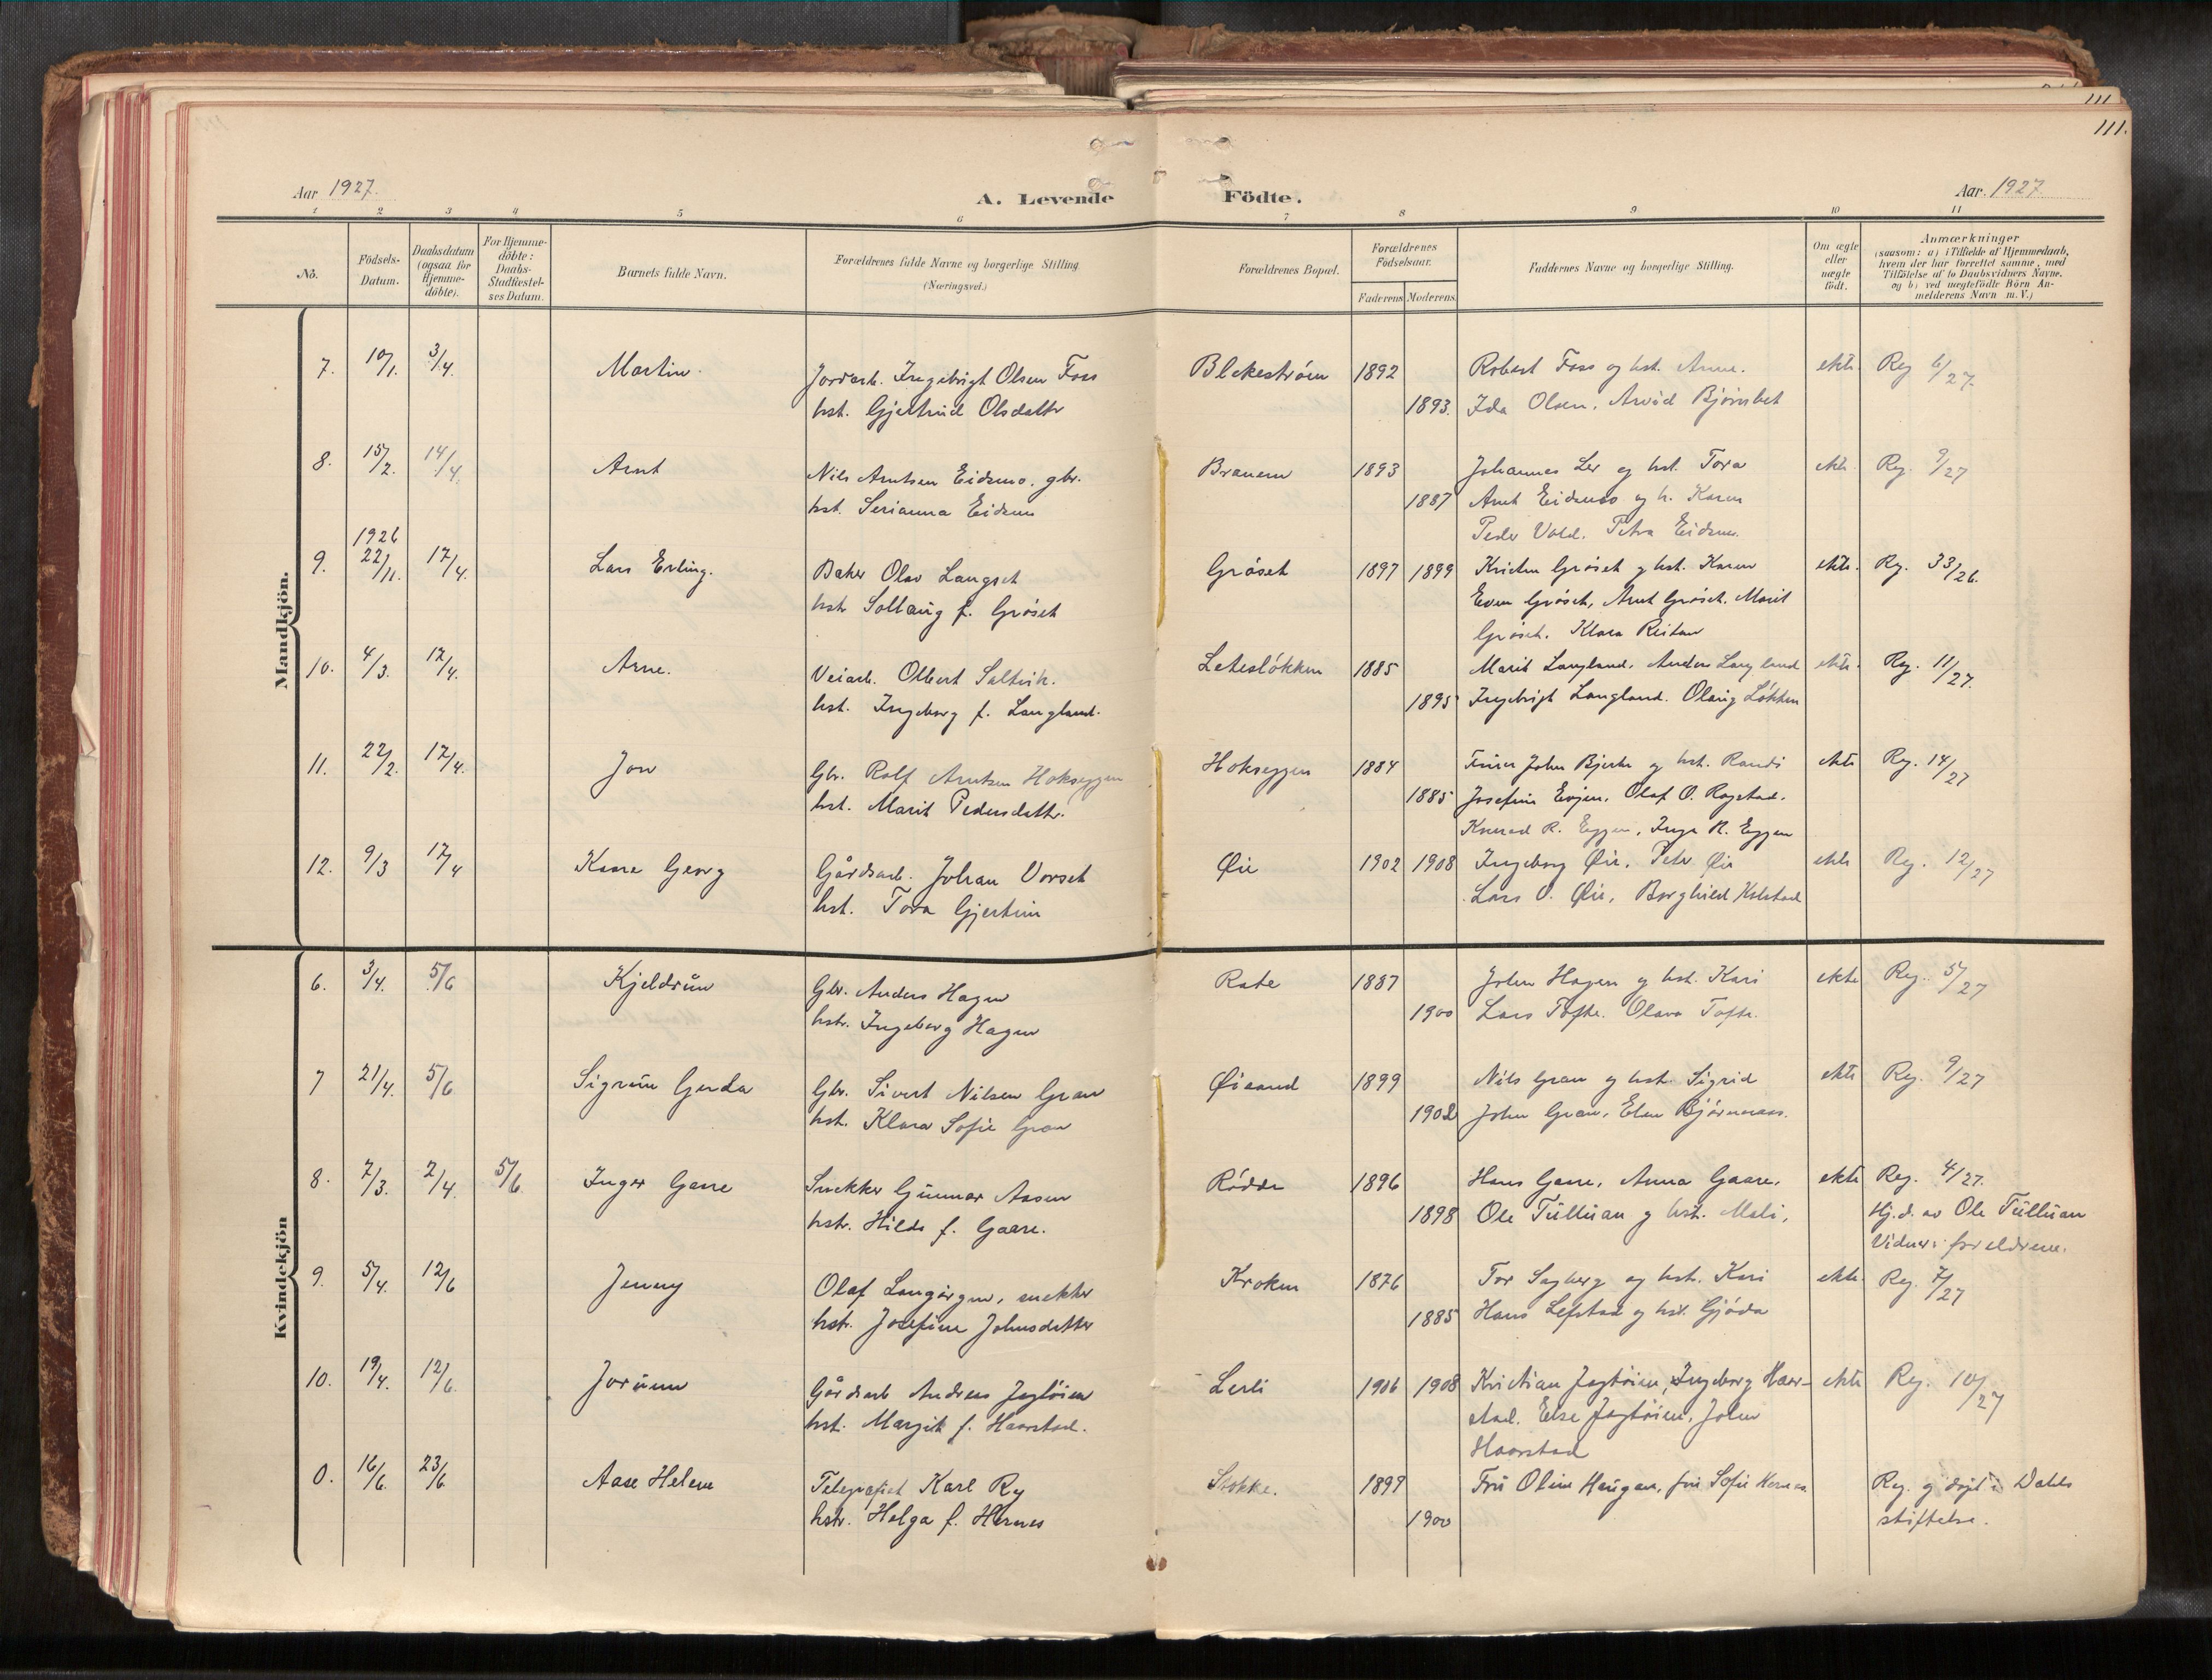 111
111.
Aar 1927.
A. Levende Födte.
Aar. 1927.
1 2 3 4 5 6 7 8 9 10 11
No.
Födsels-Datum.
Daabsdatum (ogsaa for Hjemme-döbte).
For Hjemme-döbte: Daabs-Stadfæstel-ses Datum.
Barnets fulde Navn.
Forældrenes fulde Navne og borgerlige Stilling
(Næringsvei.)
Forældrenes Bopæl.
Forældrenes Födselsaar.
Faderens Moderens
Faddernes Navne og borgerlige Stilling.
Om ægte eller uægte födt.
Anmærkninger
(saasom: a) i Tilfælde af Hjemmedaab,
hvem der har forrettet samme, med
Tilföielse af to Daabsvidners Navne.
og b) ved uægtefödte Börn An-
melderens Navn m.V.)
Mandkjön.
7. 10/1. 3/4. Martin. Jordarb. Ingebrigt Olsen Foss Blekeström 1892 Robert Foss og hst. Anne. ekte. Reg 6/27.
hst. Gjertrud Olsdattr 1893. Ida Olsen. Arvid Björnbet
8. 15/2. 14/4. Arnt Nils Arntsen Eidsmo. gbr. Branem 1893 Johannes Ler og hst. Tora ekte Reg. 9/27
hst. Serianna Eidsmo 1887 Arnt Eidsmo og h. Karen
Peder Vold. Petra Eidsmo.
1926
9. 22/11. 17/4. Lars Erling. Baker Olav Langset Gröset 1897 1899 Kristen Gröset og hst. Karen ekte. Reg. 33/26.
hst. Sollaug f. Gröset Even Gröset, Arnt Gröset. Marit
Gröset. Klara Reitan
10. 4/3. 17/4. Arne. Veiarb. Olbert Saltvik. Letesløkken 1885 Marit Langland. Anders Langland ekte. Reg. 11/27.
hst. Ingeborg f. Langland. 1895 Ingebrigt Langland. Olaug Løkken
11. 22/2. 17/4. Jon Gbr. Rolf Arntsen Hokseggen Hokseggen 1884 John Bjerke og hst. Randi ekte Reg. 14/27
hst. Marit Pedersdattr. 1885 Josefine Evjen. Olaf O. Rogstad.
Konrad R. Eggen, Inga R. Eggen
12. 9/3 17/4 Kaare Georg Gårdsarb. Johan Vorset Øie 1902 1908 Ingeborg Øie. Petr Øie ekte Reg. 12/27
hst. Tora Gjertine Lars O. Øie, Borghild Kolstad
Kvindekjön
6. 3/4. 5/6 Kjeldrun Gbr. Anders Hagen Rate 1887 John Hagen og hst. Kari ekte Reg. 5/27
hstr. Ingeborg Hagen 1900 Lars Tofte. Olava Tofte.
7 21/4. 5/6 Sigrun Gerda Gbr. Sivert Nilsen Gran Øisand 1899 Nils Gran og hst. Sigrid ekte Reg. 9/27
hst. Klara Sofie Gran 1902 John Gran, Elen Björnaas.
8. 7/3. 2/4. 5/6 Inger Gaare Snekker Gunnar Aasen Rödde 1896 Hans Gaare, Anna Gaare. ekte Reg. 4/27.
hstr. Hilda f. Gaare. 1898 Ole Tülluan og hst. Mali. Hj.d. av Ole Tülluan
Vidner: foreldrene.
9. 5/4. 12/6 Jenny Olaf Langörgen, snekker Kroken 1876 Tor Sagberg og hst. Kari ekte. Reg. 7/27
hstr. Josefine Johnsdatter 1885 Hans Lefstad og hst. Gjöda
10. 19/4. 12/6. Jorunn Gårdsarb Andreas Jagtöien Lerli 1906 1908 Kristian Jagtöien, Ingeborg Haar- ekte Reg. 10/27
hst. Margit f. Haarstad. stad. Else Jagtöien. John
Haarstad
0. 16/6. 23/6 Aase Helene Telegrafist Karl Ry Stokke. 1899 Fru Oline Haugan, fru Sofie Hernes Reg. og döpt i Dahls
hstr. Helga f. Hernes 1900 stiftelse.